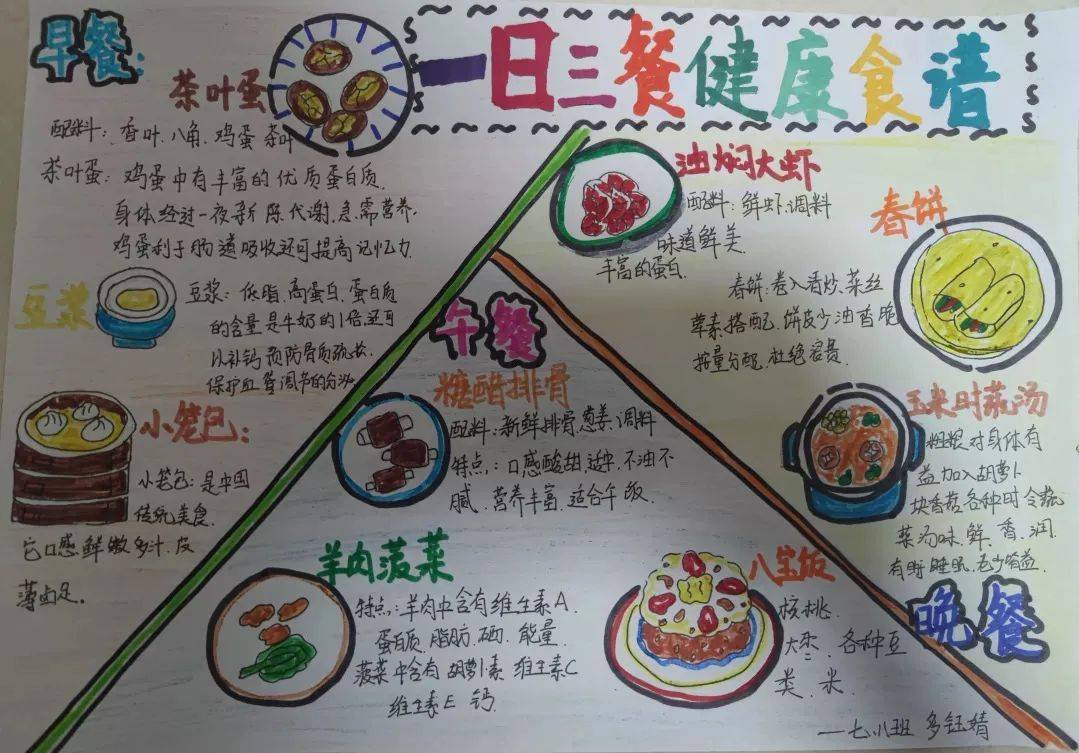 一日三餐健康食谱
早餐:
茶叶蛋
配料: 香叶.八角.鸡蛋 茶叶
茶叶蛋: 鸡蛋中有丰富的优质蛋白质.
身体经过一夜新陈代谢,急需营养.
鸡蛋利于肠道吸收还可提高记忆力.
豆浆
豆浆: 低脂.高蛋白.蛋白质
的含量是牛奶的1倍.还可
以补钙 预防骨质疏松.
保护血管 调节的分泌
小笼包:
小笼包:是中国
传统美食.
它口感鲜嫩多汁.皮
薄卤足.
午餐
糖醋排骨
配料:新鲜排骨.葱姜.调料
特点.:口感酸甜.适中.不油不
腻.营养丰富.适合午饭.
羊肉菠菜
特点:羊肉中含有维生素A.
蛋白质.脂肪.硒.能量.
菠菜中含有胡萝卜素 维生素C
维生素E 钙.
八宝饭
核桃.
大枣.各种豆
类.米
油焖大虾
配料:鲜虾.调料
味道鲜美
丰富的蛋白.
春饼
春饼:卷入香炒.菜丝
荤素搭配.饼皮少油香脆
按量分配.杜绝浪费.
玉米时蔬汤
粗粮对身体有
益加入胡萝卜
块香菇各种时令蔬
菜汤味.鲜.香.润.
有助睡眠.老少皆益.
晚餐
——七.八班 多钰婧